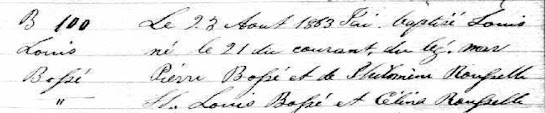 B 100 Le 23 Aout 1863 J'ai baptisé Louis
Louis né le 21 du courant, du lég. mar
Bossé Pierre Bossé et de Philomène Rousselle
" St. Louis Bossé et Célina Rousselle